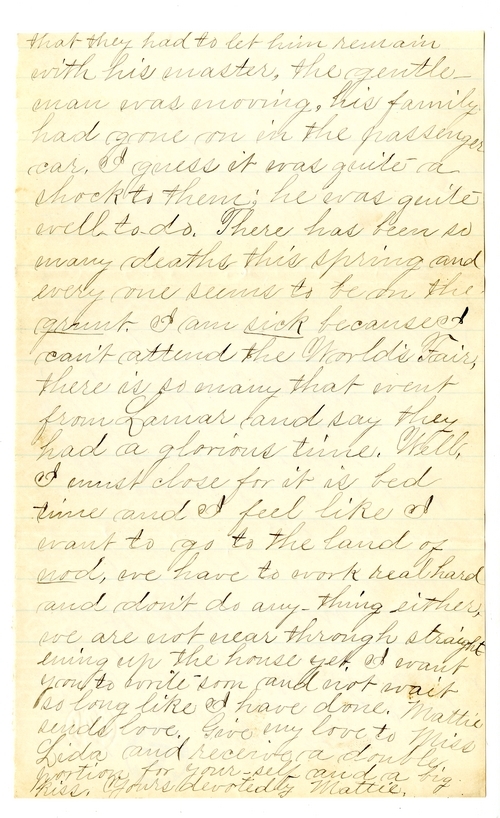 that they had to let him remain
with his master, the gentle-
man was moving, his family
had gone on in the passenger
car. I guess it was quite a
shock to them; he was quite
well-to-do. There has been so
many deaths this spring and
every one seems to be on the
grunt. I am sick because I
can't attend the World's Fair,
there is so many that went
from Lamar and say they
had a glorious time. Well,
I must close for it is bed
time and I feel like I
want to go to the land of
nod, we have to work real hard
and don't do any-thing either,
we are not near through straight
ening up the house yet. I want
you to write soon and not wait
so long like I have done. Mattie
sends love. Give my love to Miss
Lida and receive a double
portion for your-self and a big
kiss. Yours devotedly Mattie.